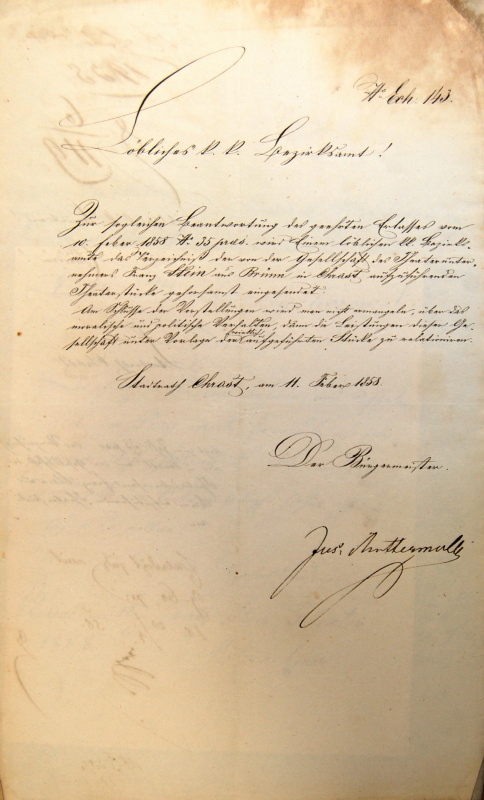 N° Exh. 143.
Löbliches k. k. Bezirksamt!
Zur sogleichen Beantwortung des geehrten Erlasses vom
10. Feber 1858 N° 35 präs. wird Einem löblichen kk. Bezirks-
amte das Verzeichniß der von der Gesellschaft des Theaterunter-
nehmers Franz Stein aus Brünn in Chrast aufzuführenden
Theaterstücke gehorsamst eingesendet.
Am Schlusse der Vorstellungen wird man nicht ermangeln, über das
moralische und politische Verhalten, dann die Leistungen dieser Ge-
sellschaft unter Vorlage der aufgeführten Stücke zu relationiren.
Stadtrath Chrast, am 11. Feber 1858.
Der Bürgermeister.
Jos.